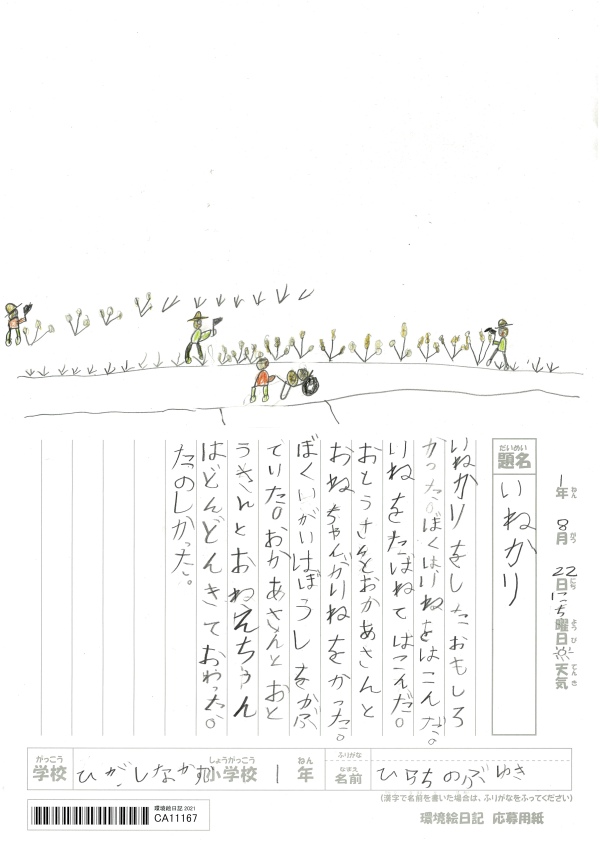 だいめい
題名
いねかり
1年 ねん
8月 がつ
22日 にち
にち曜日 ようび
天気 てんき
いねかりをしたおもしろ
かった。ぼくはいねをはこんだ。
いねをたばねてはこんだ。
おとうさんとおかあさんと
おねちゃんがいねをかった。
ぼくいがいはぼうしをかぶ
ていた。おかあさんとおと
うさんとおねえちゃん
はどんどんきておわった。
たのしかった。
がっこう
学校
ひがしなか
しょうがっこう
小学校
1
ねん
年
ふりがな
なまえ
名前
ひらちのぶゆき
(漢字で名前を書いた場合は、ふりがなをふってください)
環境絵日記 2021
CA11167
環境絵日記 応募用紙